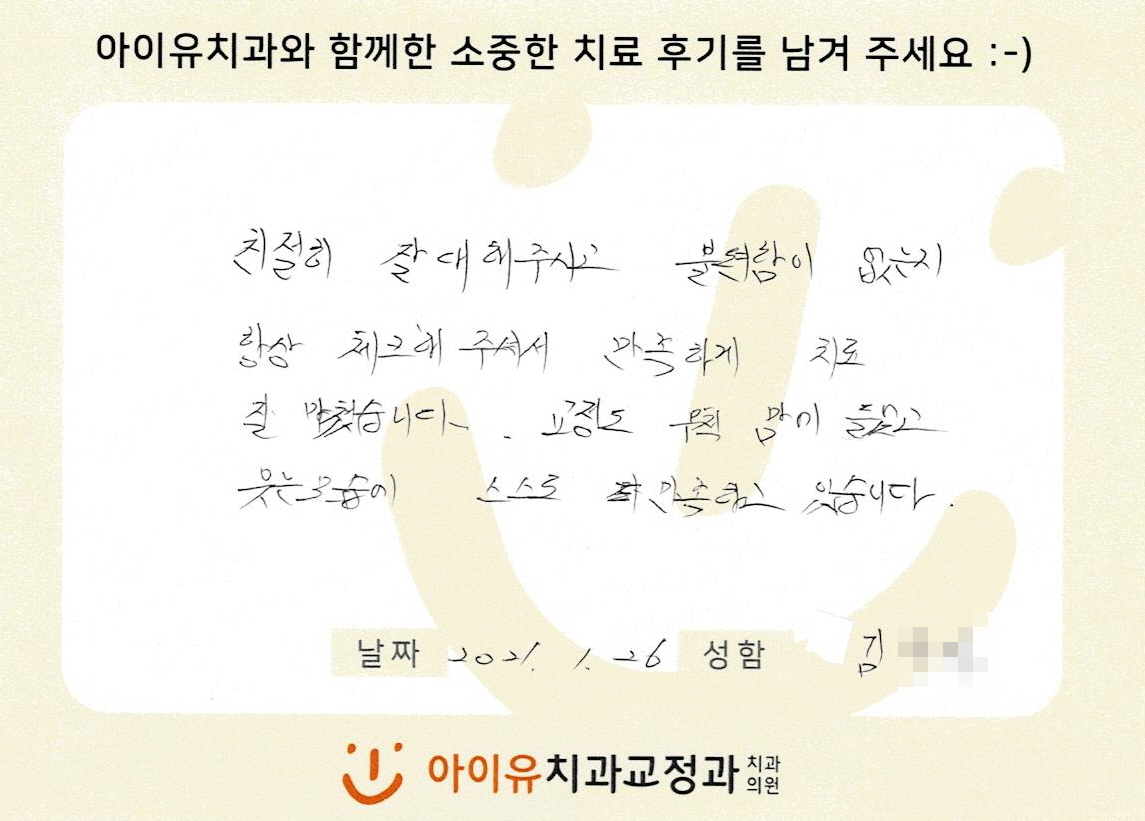 아이유치과와 함께한 소중한 치료 후기를 남겨 주세요 :-)
친절히 잘 대해주시고 불편함이 없는지
항상 체크해 주셔서 만족하게 치료
잘 마쳤습니다. 교정도 무척 맘에 들고
웃는모습이 스스로 만족하고 있습니다.
날짜 2021. 1. 26 성함 김
아이유치과교정과 치과
의원